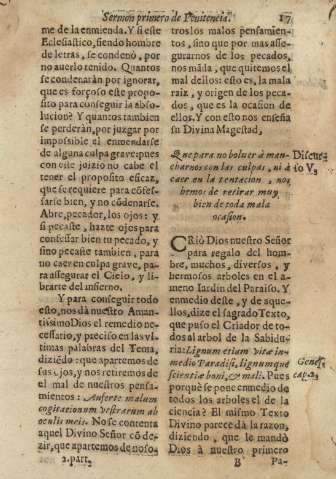 Sermon primero de Penitencia. 17
me de la enmienda. Y si este
Eclesiastico, siendo hombre
de letras, se condenò, por no
auerlo tenido. Quantos
se condenaràn por ignorar,
que es forçoso este propo-
sito para conseguir la abso-
lucion? Y quantos tambien
se perderàn, por juzgar por
impossible el enmendarse
de alguna culpa graue; pues
con este juizio no cabe el
tener el proposito eficaz,
que se requiere para cõfes-
sarse bien, y no cõdenarse.
Abre, pecador, los ojos: y
si pecaste, hazte ojos para
confessar bien tu pecado, y
sino pecaste tambien, para
no caer en culpa graue, pa-
ra assegurar el Cielo, y li-
brarte del infierno.
Y para conseguir todo
esto, nos dà nuestro Aman-
tissimo Dios el remedio ne-
cessario, y preciso en las vl-
timas palabras del Tema,
diziẽdo: que apartemos de
sus ojos, y nos retiremos de
el mal de nuestros pensa-
mientos: Auferte malum
cogitationum vestrarum ab
oculis meis. No se contenta
aquel Divino Señor cõ de-
zir, que apartemos de noso-
2. part.
tros los malos pensamien-
tos, sino que por mas asse-
gurarnos de los pecados,
nos mãda, que quitemos el
mal dellos: esto es, la mala
raiz, y origen de los peca-
dos, que es la ocasion de
ellos. Y con esto nos enseña
su Divina Magestad,
Que para no bolver à man-
charnos con las culpas, ni à
caer en la tentacion, nos
hemos de retirar muy
bien de toda mala
ocasion.
Discur-
so V.
CRiò Dios nuestro Señor
para regalo del hom-
bre, muchos, diversos, y
hermosos arboles en el a-
meno Iardin del Paraiso. Y
en medio deste, y de aque-
llos, dize el sagrado Texto,
que puso el Criador de to-
dos al arbol de la Sabidu-
ria: Lignum etiam vitæ in
medio Paradisi, lignumque
scientiæ boni, & mali. Pues
Genes.
cap. 2.
porquè se pone en medio de
todos los arboles el de la
ciencia? El mismo Texto
Divino parece dà la razon,
diziendo, que le mandò
Dios à nuestro primero
B Pa-